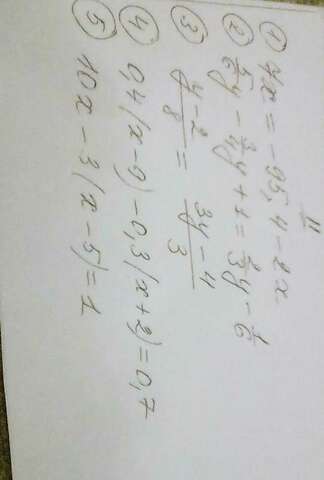 ① 7x = -95,4 - 2x
② 5/6 y - 3/4 y + 1 = 2/3 y - 1/6
③ (y - 2)/8 = (3y - 4)/3
④ 0,4(x - 9) - 0,3(x + 2) = 0,7
⑤ 10x - 3(x - 5) = 1